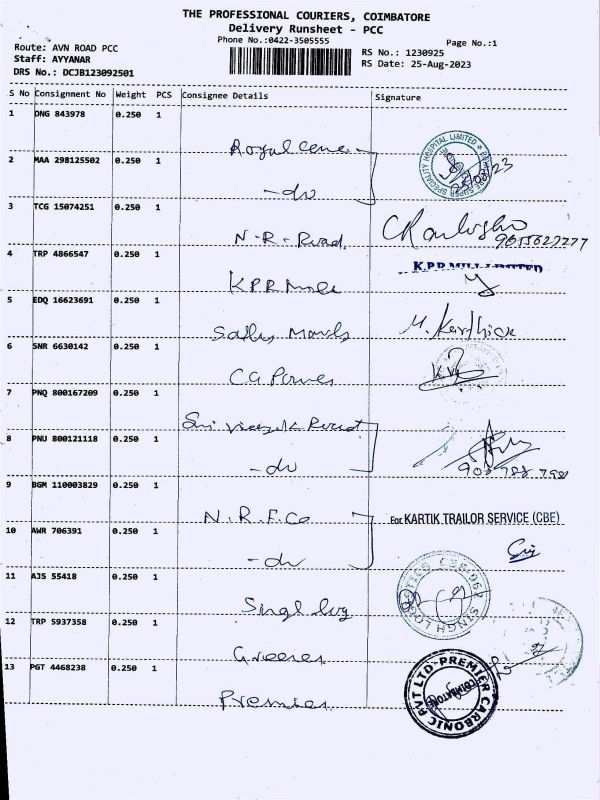 THE PROFESSIONAL COURIERS, COIMBATORE
Delivery Runsheet - PCC
Phone No.:0422-3505555
Page No.:1
Route: AVN ROAD PCC
Staff: AYYANAR
DRS No.: DCJB123092501
RS No.: 1230925
RS Date: 25-Aug-2023
S No Consignment No Weight PCS Consignee Details Signature
1 DNG 843978 0.250 1
Royal
2 MAA 298125502 0.250 1
-do
3 TCG 15074251 0.250 1
N-R-Road
4 TRP 4866547 0.250 1
K.P.R MILL LIMITED
KPR
5 EDQ 16623691 0.250 1
M. Karthick
6 SNR 6630142 0.250 1
CG Power
K.V.
7 PNQ 800167209 0.250 1
Sri
8 PNU 800121118 0.250 1
-do
9 BGM 110003829 0.250 1
N.R.F.Co For KARTIK TRAILOR SERVICE (CBE)
10 AWR 706391 0.250 1
-do
11 AJS 55418 0.250 1
SINGH LOGISTICS CBE-062
12 TRP 5937358 0.250 1
Greenes
13 PGT 4468238 0.250 1
Premier
PREMIER CARBONIC PVT LTD
COIMBATORE